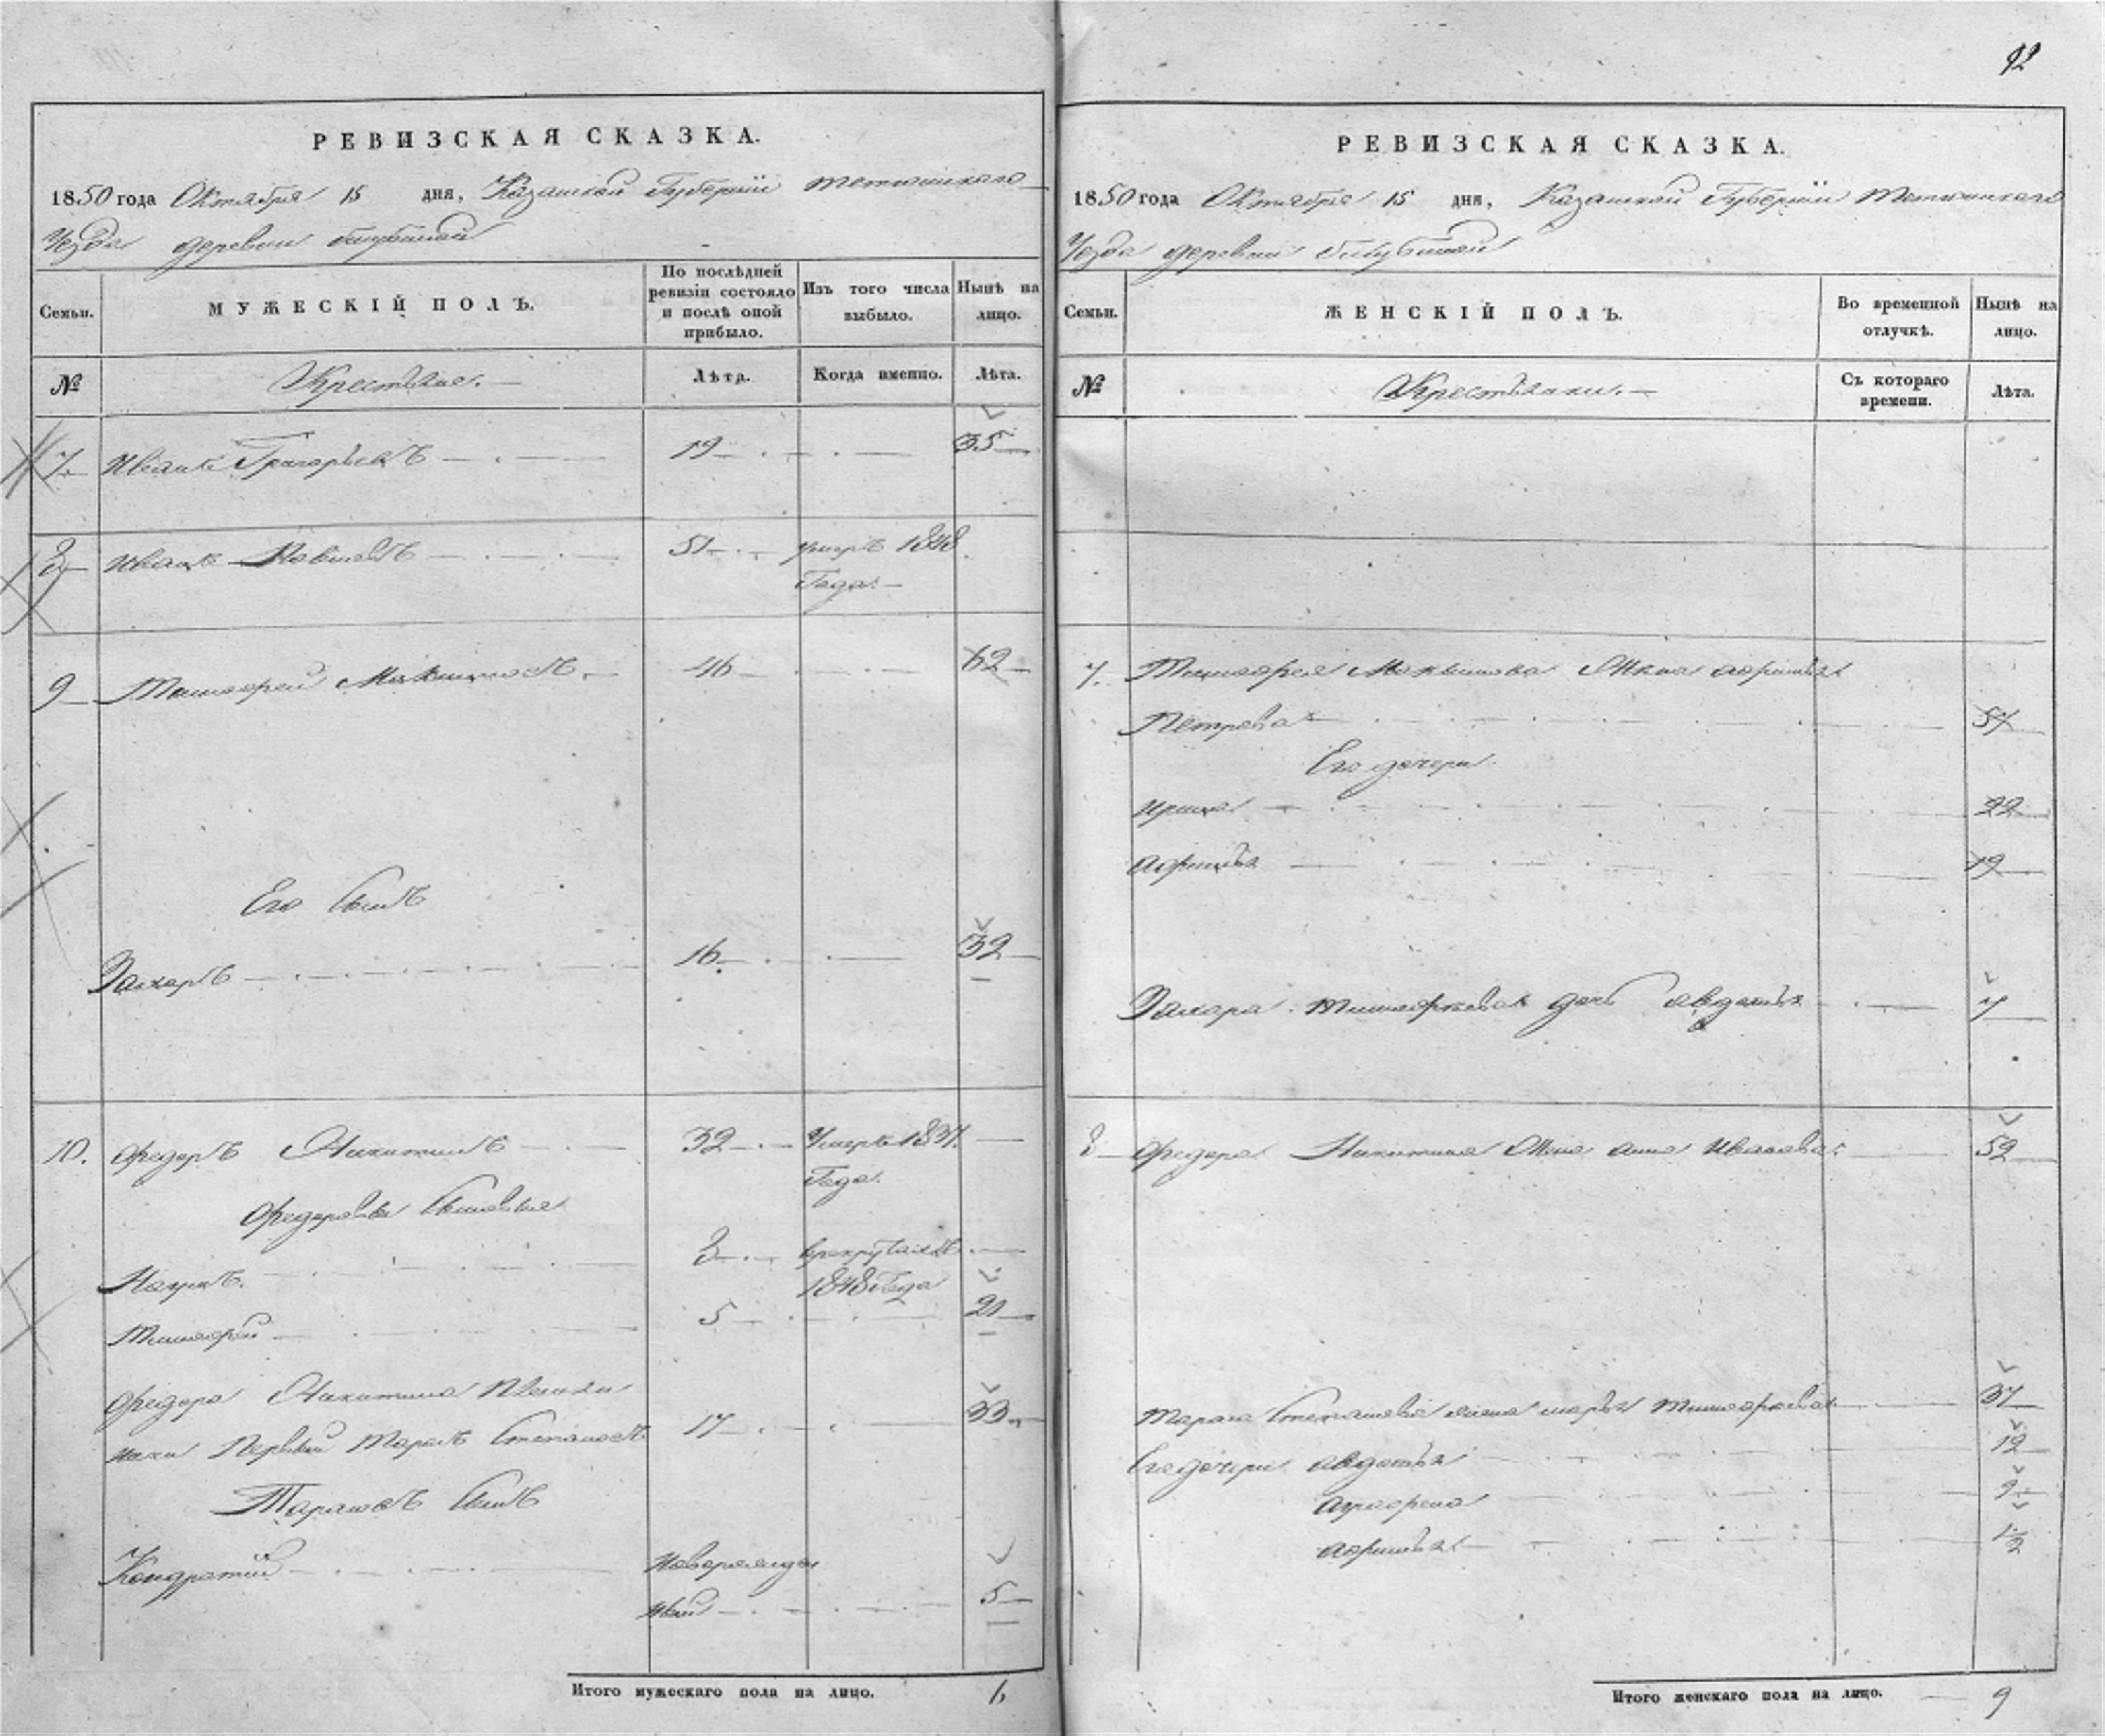 92
РЕВИЗСКАЯ СКАЗКА.
1850 года Октября 15 дня, Казанской Губернии Тетюшскаго
Уезда деревни
Семьи.
МУЖЕСКІЙ ПОЛЪ.
По послѣдней ревизіи состояло и послѣ оной прибыло.
Изъ того числа выбыло.
Нынѣ на лицо.
№
Крестьяне.
Лѣта.
Когда именно.
Лѣта.
7. Иванъ Григорьевъ 19 35
8 Иванъ 51 умеръ 1848
Года.
9 Тимофей 46 62
Его Сынъ
Захаръ 16 32
10. Федоръ Никитинъ 32 Умеръ 1837.
Года.
Федоровы Сыновья
Наумъ. 3 в рекруты
1848 Года
Тимофей 5 21
Федора Никитина Племян
ники Первый Тарасъ Степановъ 17 33
Тарасовъ Сынъ
Кондратий Новорожден
ный 5
Итого мужескаго пола на лицо. 6
РЕВИЗСКАЯ СКАЗКА.
1850 года Октября 15 дня, Казанской Губернии Тетюшскаго
Уезда деревни
Семьи.
ЖЕНСКІЙ ПОЛЪ.
Во временной отлучкѣ.
Нынѣ на лицо.
№
Крестьянки.
Съ котораго времени.
Лѣта.
7. Тимофея Жена Афимья
Петрова 57
Его дочери
Ирина 22
Афимья 19
Захара Тимофеева дочь Авдотья 7
8 Федора Никитина Жена Анна Иванова 52
Тараса Степанова жена Марья Тимофеева 37
Его дочери Авдотья 12
Аграфена 9
Афимья 1/2
Итого женскаго пола на лицо. 9